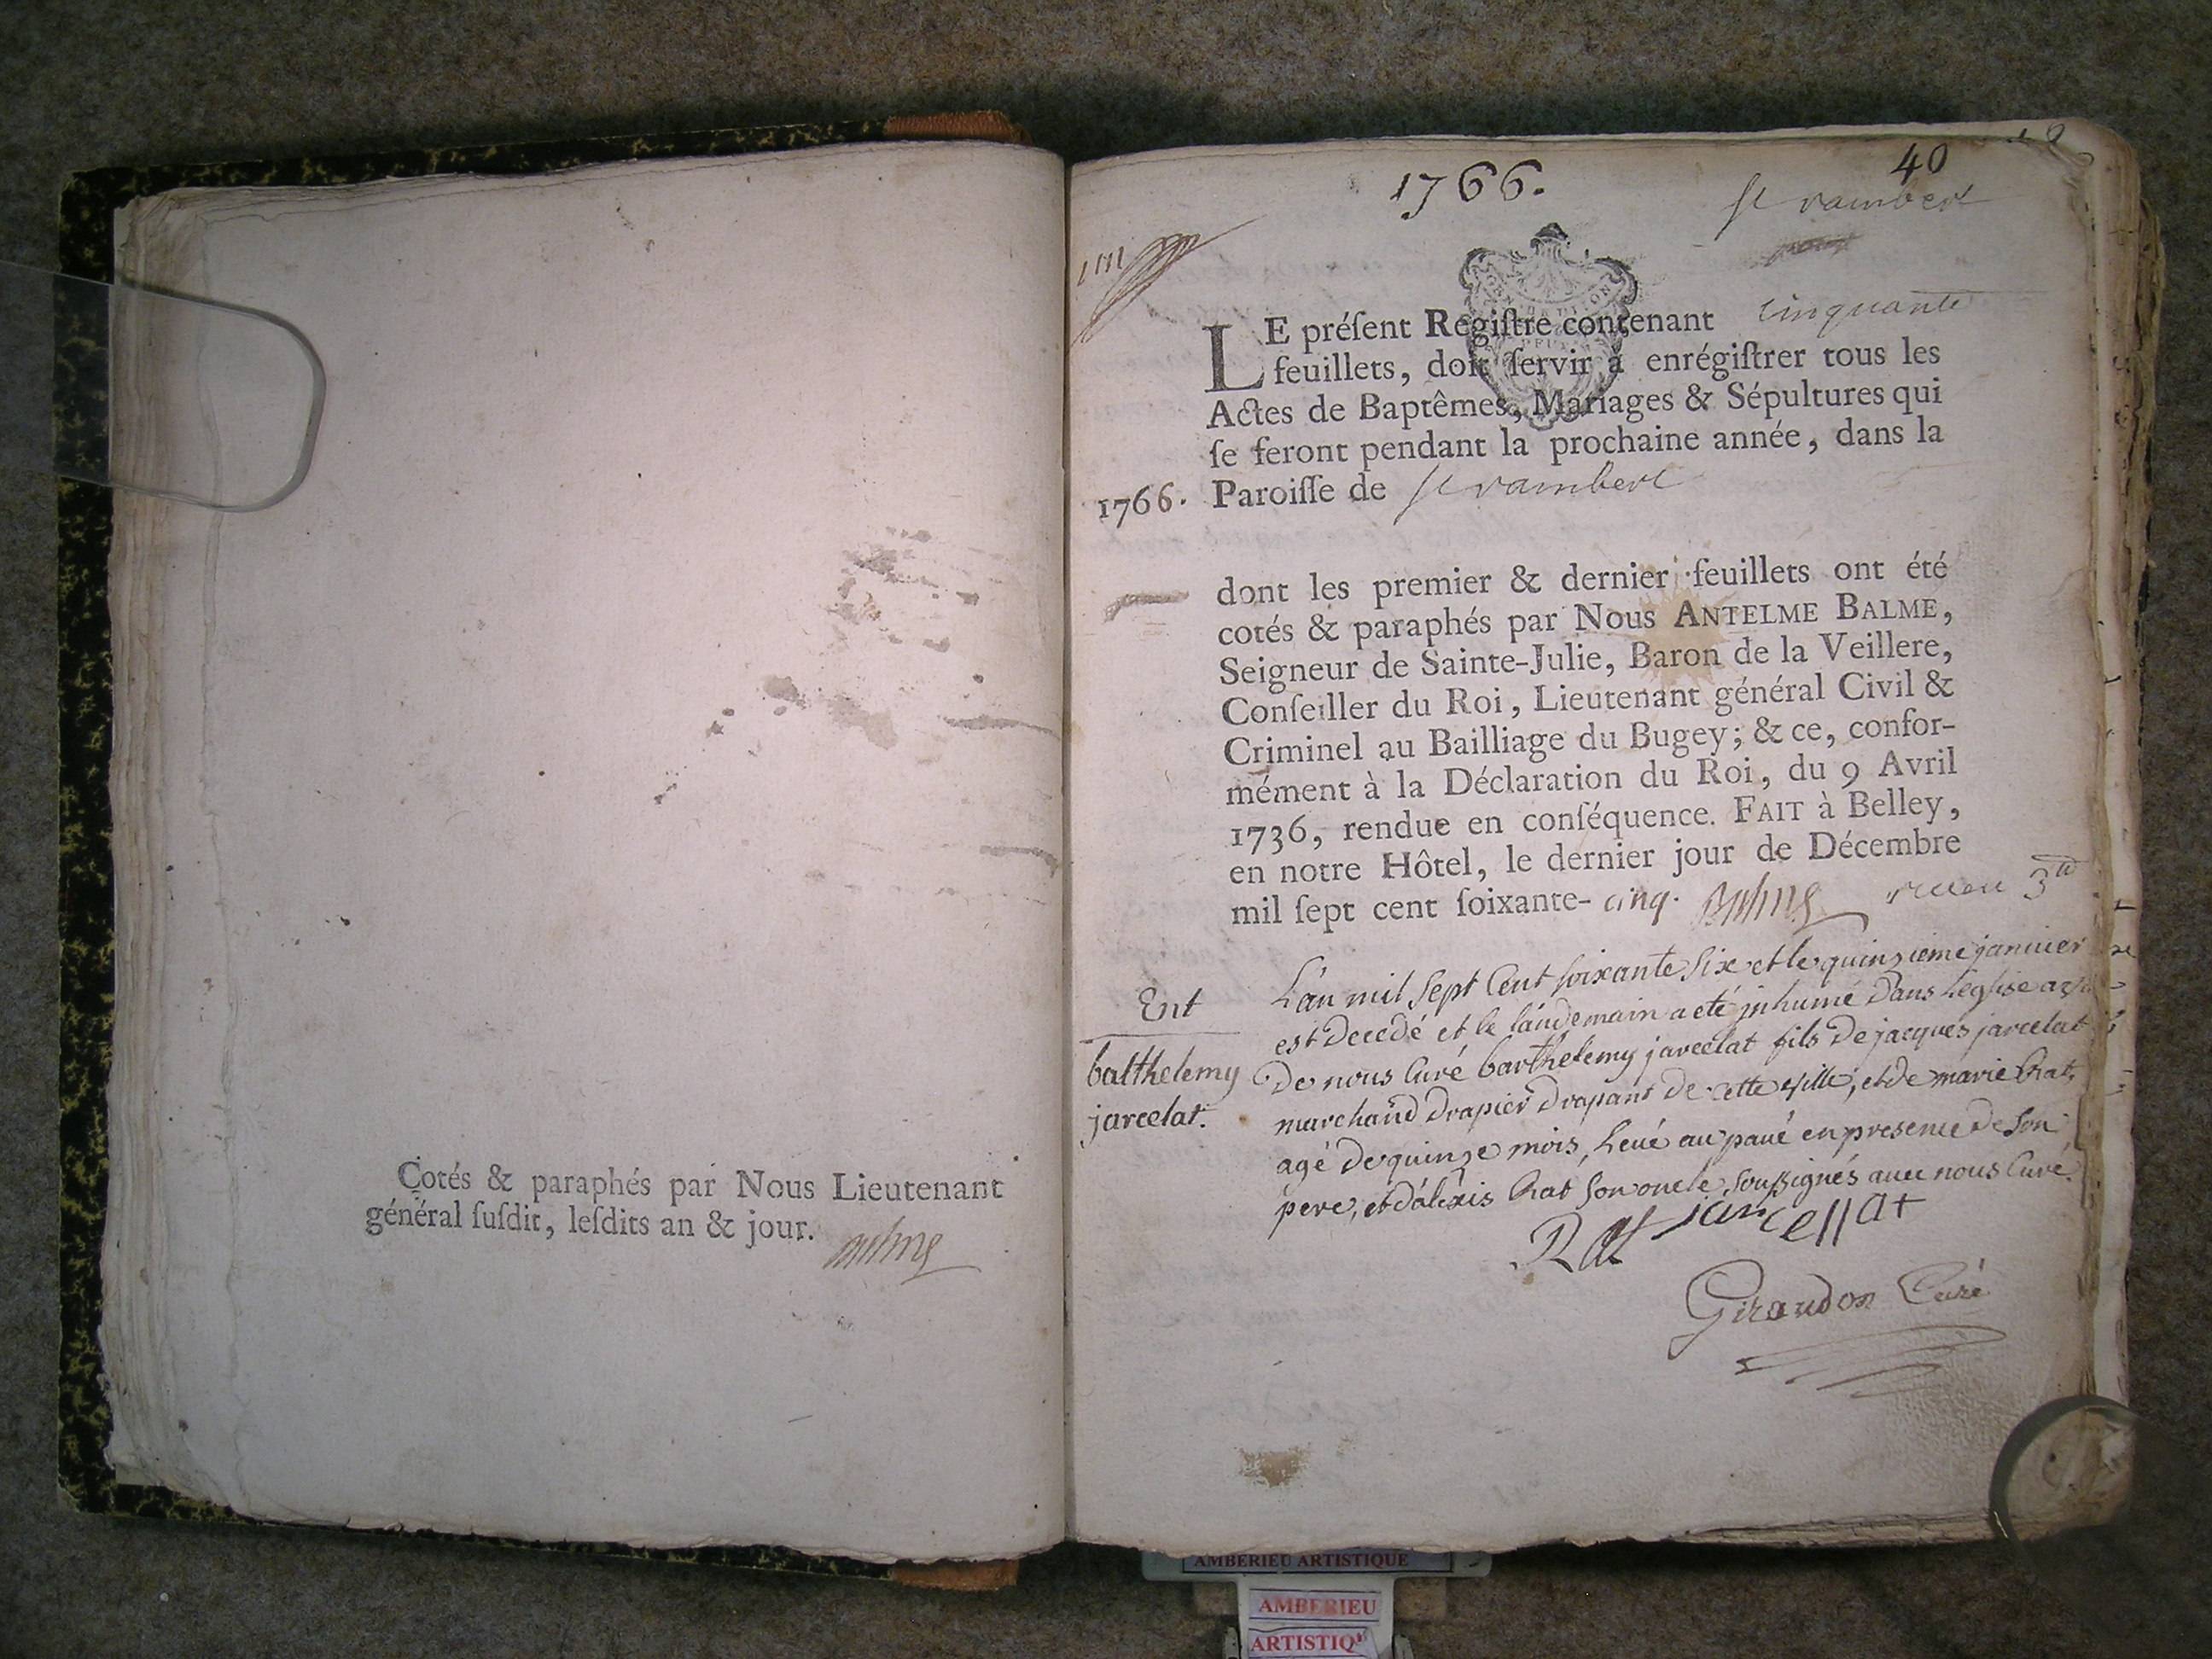 Cotés & paraphés par Nous Lieutenant
général ſuſdit, leſdits an & jour.
1766.
40
st rambert
LE préſent Regiſtre contenant cinquante
feuillets, doit ſervir à enrégiſtrer tous les
Actes de Baptêmes, Mariages & Sépultures qui
ſe feront pendant la prochaine année, dans la
1766. Paroiſſe de st rambert
dont les premier & dernier feuillets ont été
cotés & paraphés par Nous ANTELME BALME,
Seigneur de Sainte-Julie, Baron de la Veillere,
Conſeiller du Roi, Lieutenant général Civil &
Criminel au Bailliage du Bugey; & ce, confor-
mément à la Déclaration du Roi, du 9 Avril
1736, rendue en conſéquence. FAIT à Belley,
en notre Hôtel, le dernier jour de Décembre
mil ſept cent ſoixante- cinq. Balme
Ent
balthelemy
jarcelat.
L'an mil sept Cent soixante six et le quinzieme januier
est decedé et le landemain a eté jnhumé dans L'eglise
de nous Curé barthelemy jarcelat fils de jacques jarcelat
marchand drapier drapant de cette ville, et de marie Rat,
agé de quinze mois, Leué au paué en presence de son
pere, et d'alexis Rat son oncle soussignés auec nous Curé.
Rat jarcellat
Giraudon Curé
AMBERIEU ARTISTIQUE
AMBERIEU
ARTISTIQ